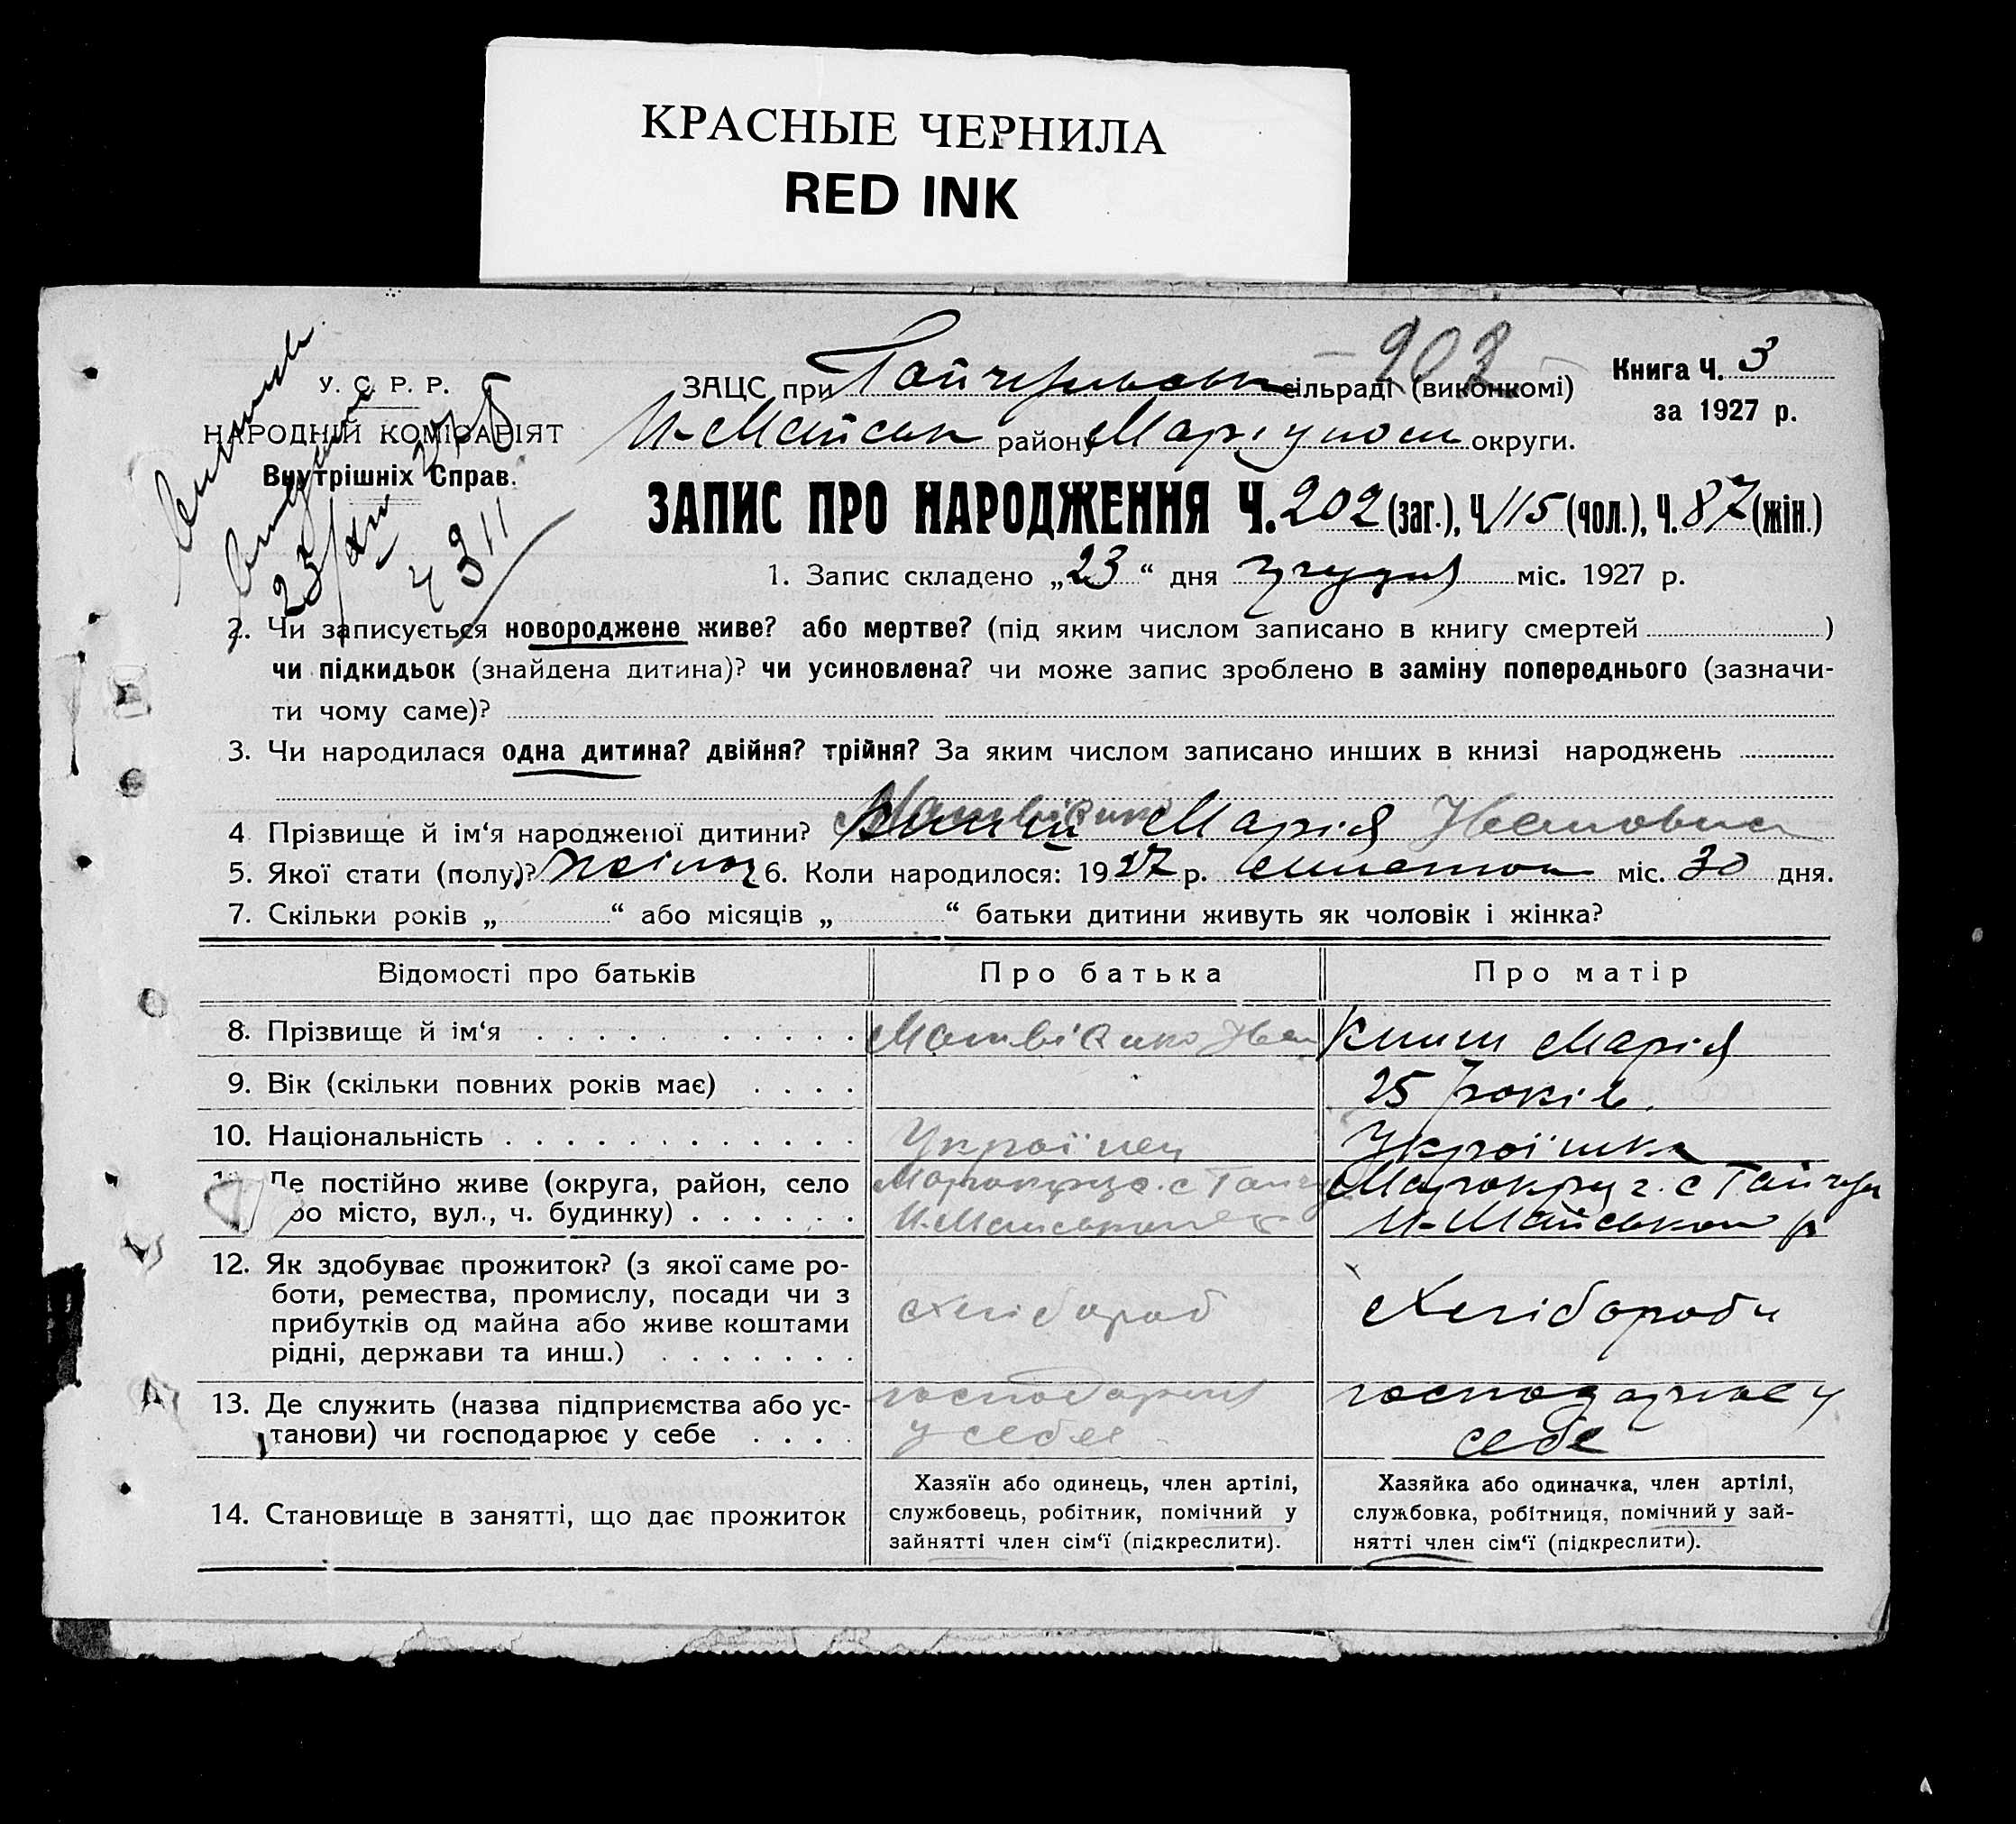 КРАСНЫЕ ЧЕРНИЛА
RED INK
202
Книга Ч. 3
за 1927 р.
У. С. Р. Р.
НАРОДНІЙ КОМІСАРІЯТ
Внутрішніх Справ.
ЗАЦС при сільраді (виконкомі)
району округи.
ЗАПИС ПРО НАРОДЖЕННЯ Ч. 202 (заг.), Ч. 115 (чол.), Ч. 87 (жін.)
1. Запис складено „23“ дня грудня міс. 1927 р.
2. Чи записується новороджене живе? або мертве? (під яким числом записано в книгу смертей )
чи підкидьок (знайдена дитина)? чи усиновлена? чи може запис зроблено в заміну попереднього (зазначи-
ти чому саме)?
3. Чи народилася одна дитина? двійня? трійня? За яким числом записано инших в книзі народжень
4. Прізвище й ім‘я народженої дитини? Марія Ивановна
5. Якої стати (полу)? жіноч 6. Коли народилося: 1927 р. листопа міс. 30 дня.
7. Скільки років „ “ або місяців „ “ батьки дитини живуть як чоловік і жінка?
Відомості про батьків Про батька Про матір
8. Прізвище й ім‘я Матвієнко Иван Книш Марія
9. Вік (скільки повних років має) 25 років.
10. Національність Українец Українка
11. Де постійно живе (округа, район, село
або місто, вул., ч. будинку)
12. Як здобуває прожиток? (з якої саме ро-
боти, ремества, промислу, посади чи з
прибутків од майна або живе коштами
рідні, держави та инш.)
Хлібороб
Хлібороби
13. Де служить (назва підприємства або ус-
танови) чи господарює у себе
у себе
господарює у
себе
14. Становище в занятті, що дає прожиток
Хазяїн або одинець, член артілі,
службовець, робітник, помічний у
зайнятті член сім‘ї (підкреслити).
Хазяйка або одиначка, член артілі,
службовка, робітниця, помічний у зай-
нятті член сім‘ї (підкреслити).